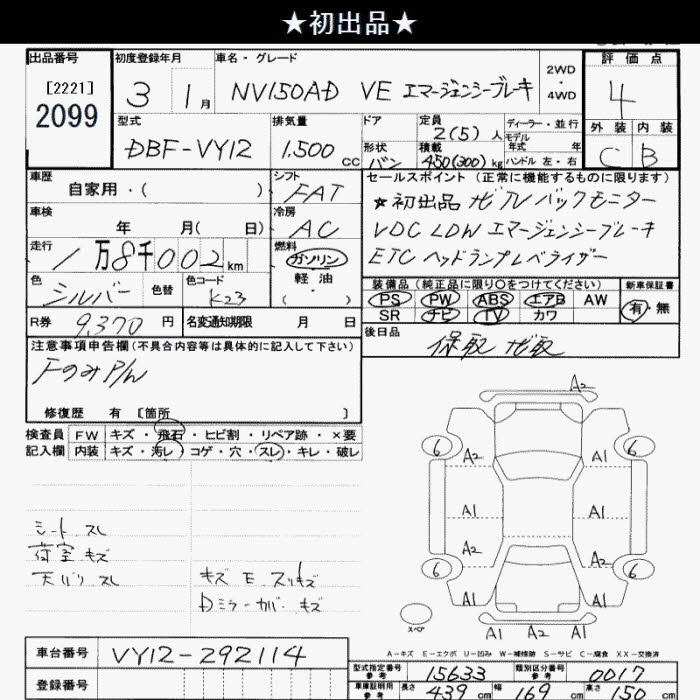 ★初出品★
出品番号
[2221]
2099
初度登録年月
3 1月
車名・グレード
NV150AD VE エマージェンシーブレーキ
2WD
・
4WD
評価点
4
外装 内装
C B
型式
DBF-VY12
排気量
1,500 cc
ドア
形状
バン
定員
2(5)人
積載
450(300)kg
ディーラー・並行
モデル
年式 年
ハンドル 左・右
車歴
自家用・( )
シフト
FAT
車検
年 月( 日)
冷房
AC
走行
1万8千002km
燃料
ガソリン
軽油
( )
色
シルバー
色替
色コード
K23
R券 9,370円
名変通知期限 月 日
セールスポイント(正常に機能するものに限ります)
★初出品 ナビTV バックモニター
VDC LDW エマージェンシーブレーキ
ETC ヘッドランプレベライザー
装備品(純正品に限り○をつけてください)
PS PW ABS エアB AW
SR ナビ TV カワ
新車保証書
有・無
後日品
保取 ナビ取
注意事項申告欄(不具合内容等は具体的に記入して下さい)
FのみP/W
修復歴 有 [箇所 ]
検査員 FW キズ・飛石・ヒビ割・リペア跡・×要
記入欄 内装 キズ・汚レ・コゲ・穴・スレ・キレ・破レ
シート スレ
荷室 キズ
天バリ スレ
キズ E スリキズ
Dミラーカバー キズ
A2
6 6
A2 A1
A1 A1
A2 A1
6 6
A1 A1
A1 A2 A1
スペア
A-キズ E-エクボ U-凹み W-補修跡 S-サビ C-腐食 XX-交換済
車台番号 VY12-292114
登録番号
型式指定番号
参考
15633
類別区分番号
参考
0017
車庫証明用
参考
長さ 439cm 幅 169cm 高さ 150cm